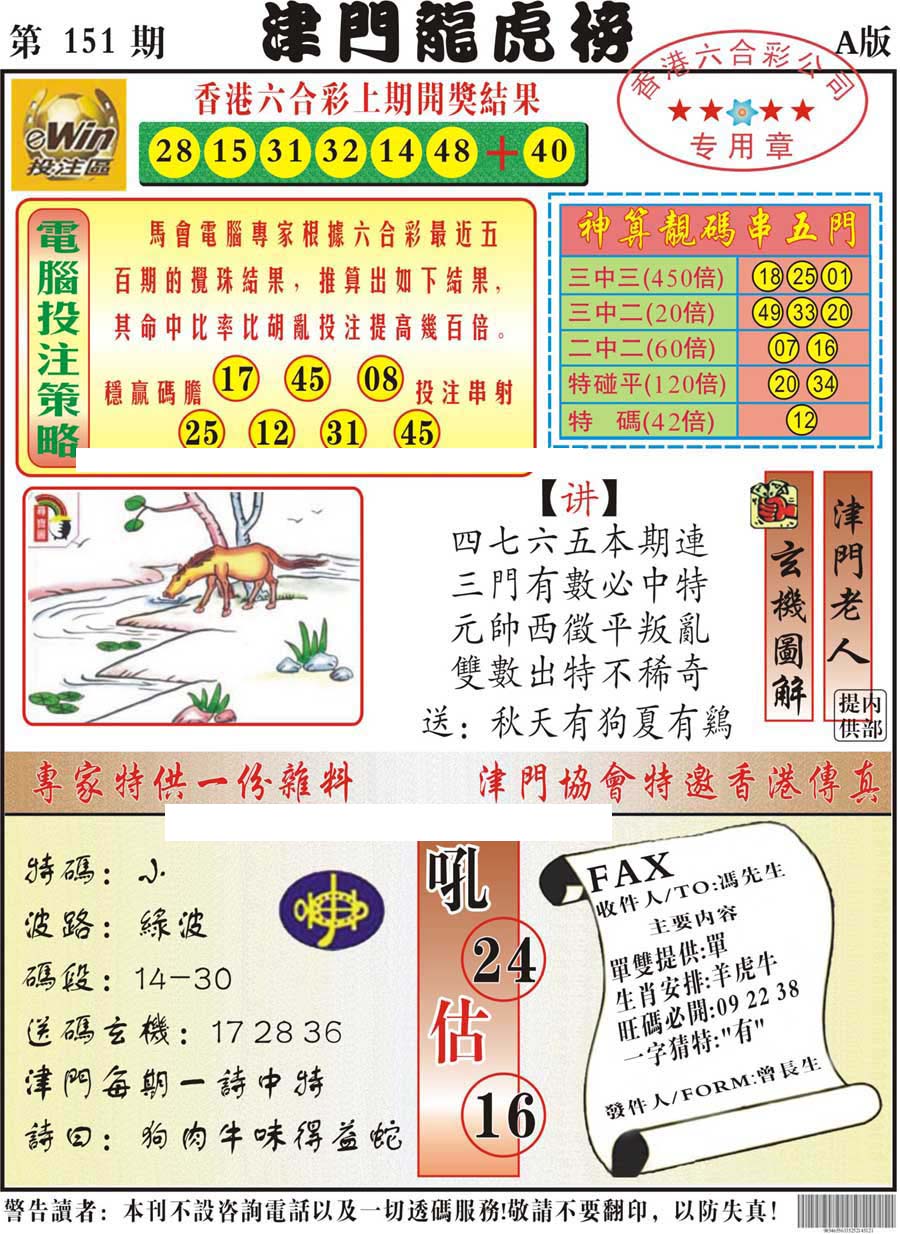 第 151 期
津門龍虎榜
A版
香港六合彩公司
专用章
eWin
投注區
香港六合彩上期開獎結果
28 15 31 32 14 48 + 40
電腦投注策略
馬會電腦專家根據六合彩最近五
百期的攪珠結果，推算出如下結果，
其命中比率比胡亂投注提高幾百倍。
穩贏碼膽 17 45 08 投注串射
25 12 31 45
神算靚碼串五門
三中三(450倍) 18 25 01
三中二(20倍) 49 33 20
二中二(60倍) 07 16
特碰平(120倍) 20 34
特 碼(42倍) 12
尋寶圖
【讲】
四七六五本期連
三門有數必中特
元帥西徵平叛亂
雙數出特不稀奇
送：秋天有狗夏有鷄
玄機圖解
津門老人
内部提供
專家特供一份雜料
津門協會特邀香港傳真
特碼：小
波路：綠波
碼段：14-30
送碼玄機：17 28 36
津門每期一詩中特
詩曰：狗肉牛味得益蛇
吼
24
估
16
FAX
收件人/TO:馮先生
主要内容
單雙提供:單
生肖安排:羊虎牛
旺碼必開:09 22 38
一字猜特:"有"
發件人/FORM:曾長生
警告讀者：本刊不設咨詢電話以及一切透碼服務!敬請不要翻印，以防失真!